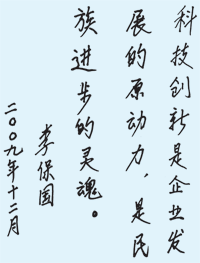 科技创新是企业发
展的原动力，是民
族进步的灵魂。
李保国
二〇〇九年十二月